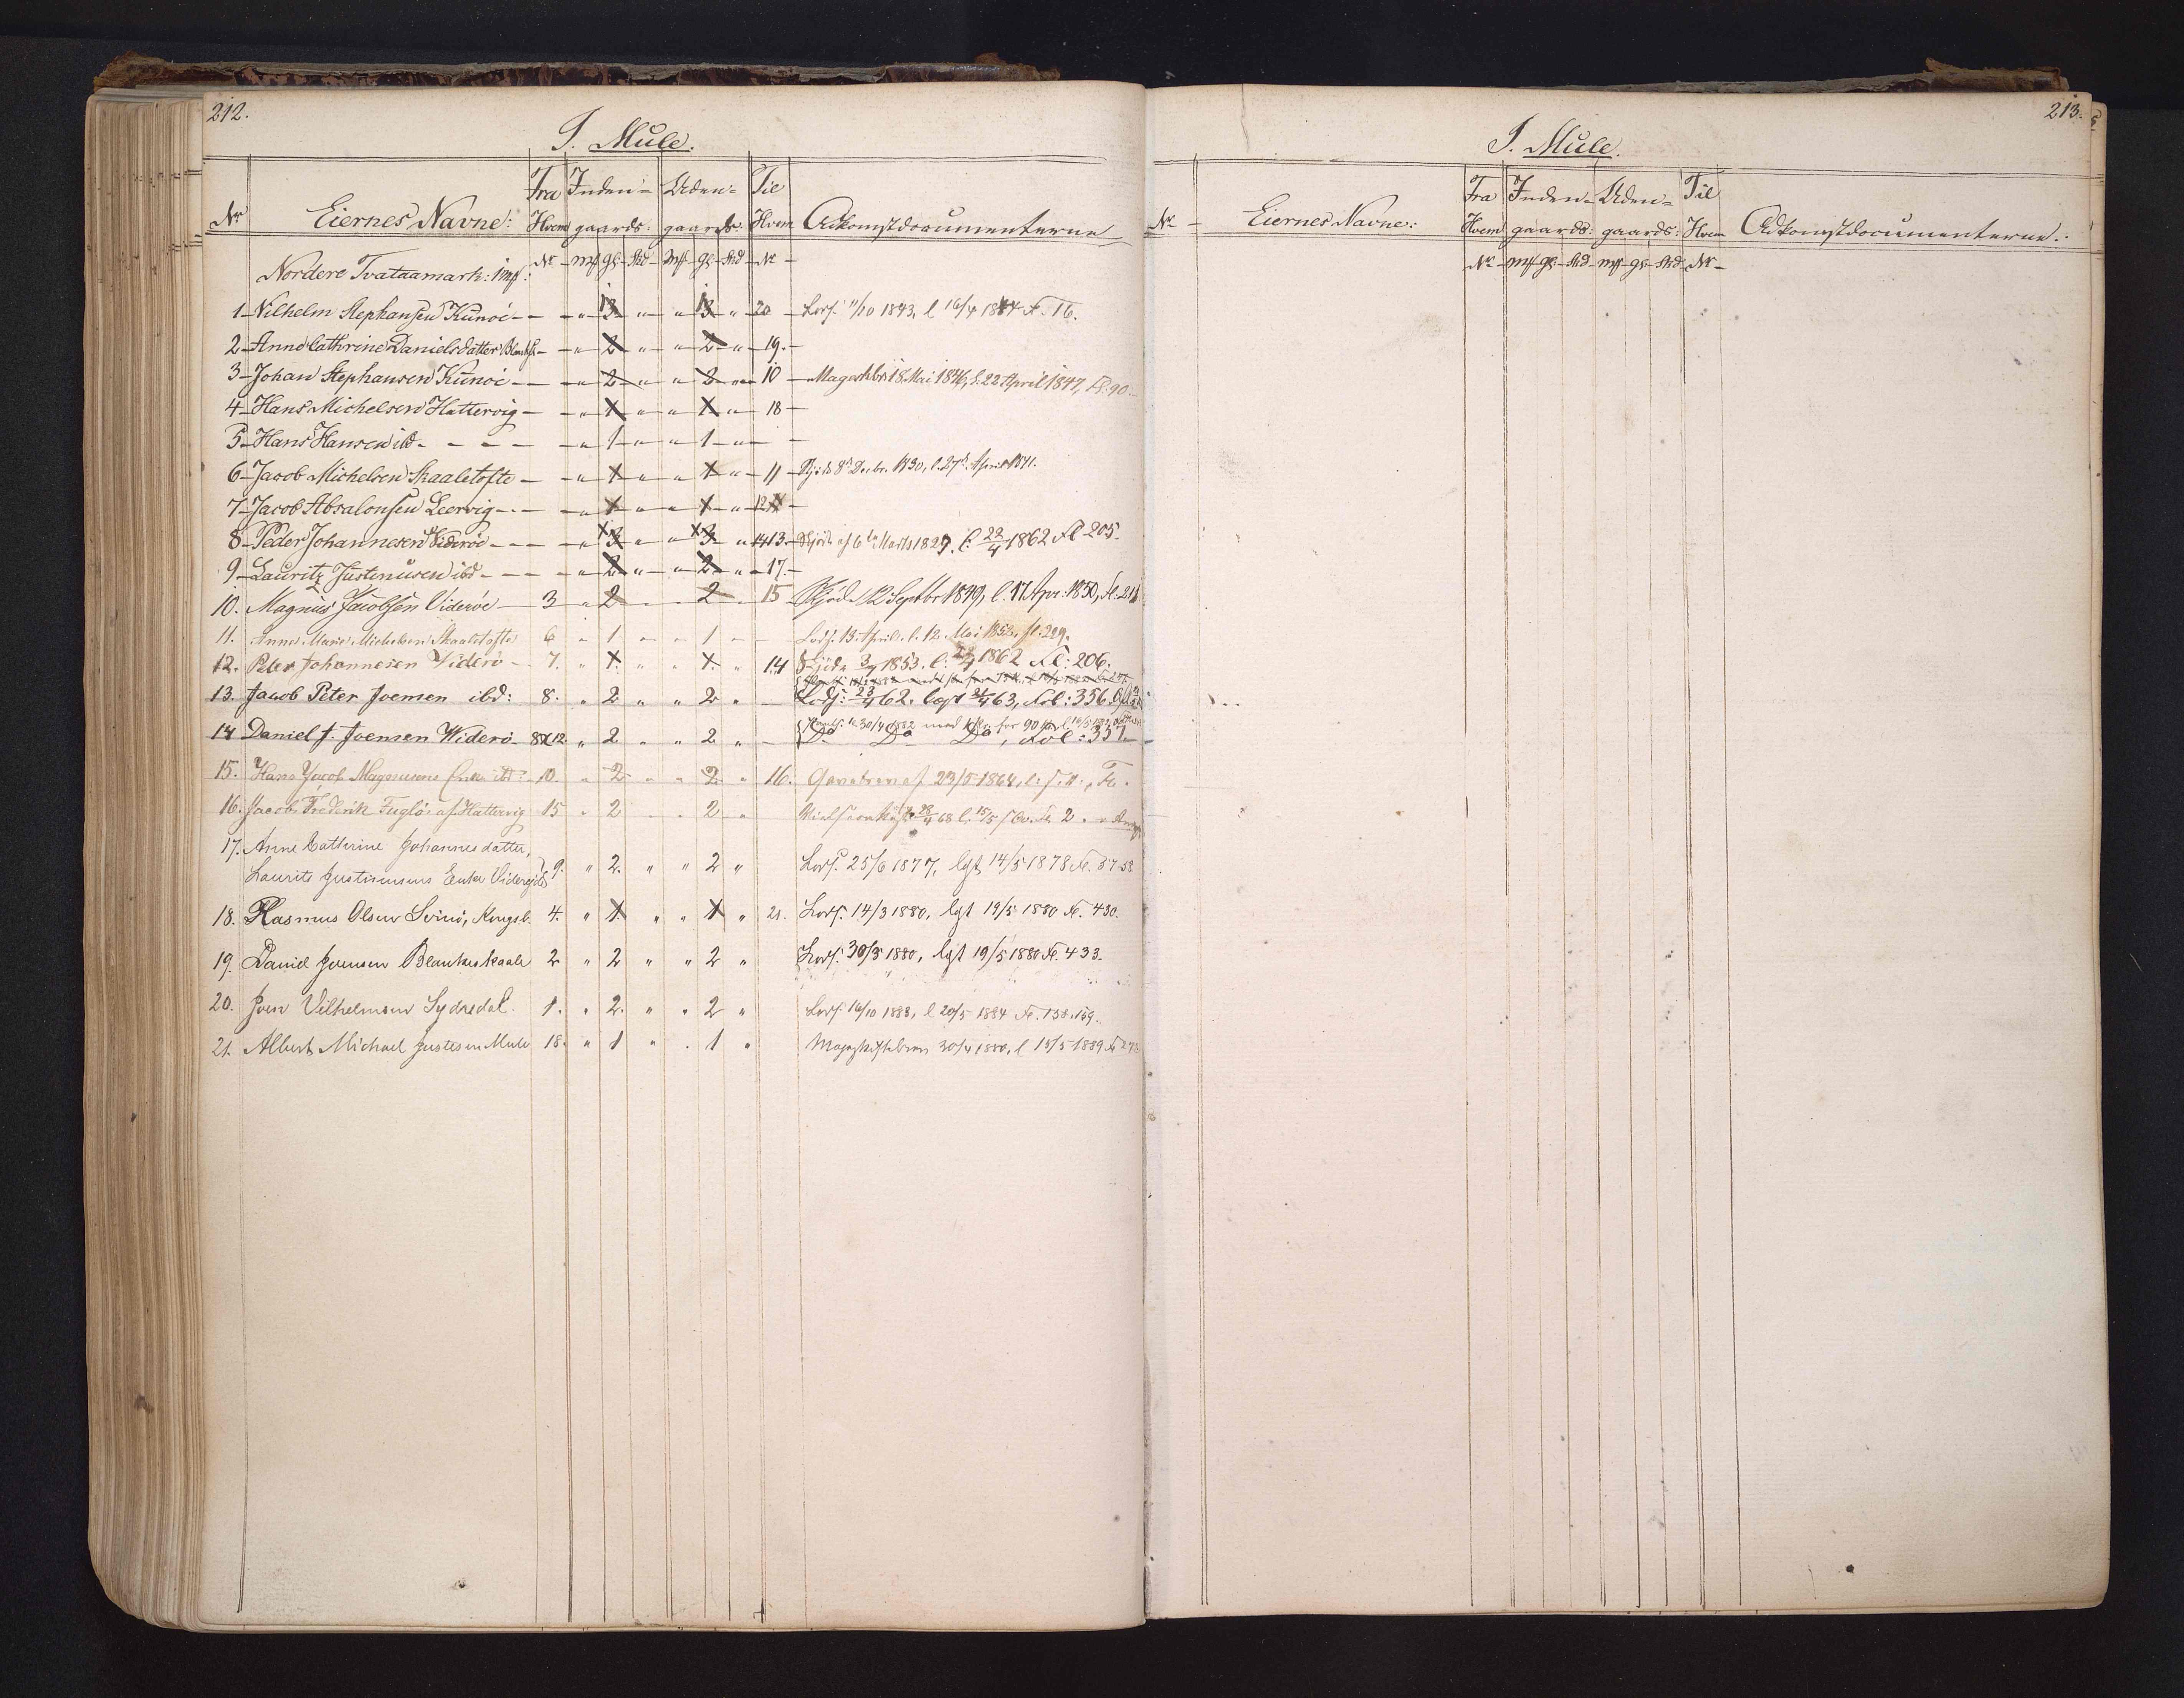 212.
I. Mule.
Nr Eiernes Navne: Fra Hvem Inden- gaards: Uden- gaards: Til Hvem Adkomstdocumenterne
Nordere Tvataamark: 1 mk: Nr mk gl. Skd mk gl. Skd Nr
1 Vilhelm Stephansen Kunöe - " 3 " " 3 " 20 Lodf. 11/10 1843, l 16/4 1844 Fl. 16.
2 Anne Cathrine Danielsdatter - " 2 " " 2 " 19.
3 Johan Stephansen Kunöe - " 2 " " 2 " 10 Mageskbr. 18 Mai 1846, l. 22 April 1847, Fl: 90
4 Hans Michelsen Hattervig - " 1 " " 1 " 18
5 Hans Hansen ibd - " 1 " " 1 "
6 Jacob Michelsen Skaaletofte - " 1 " " 1 " 11 Skjöde 8de Decbr. 1830, l. 27de April 1841.
7 Jacob Absalonsen Leervig - " 1 " " 1 " 12
8 Peder Johannesen Videröe - " 3 " " 3 " 14 13 Skjöde af 6te Marts 1829. l: 22/4 1862 Fl 205.
9 Lauritz Justinusen ibd - " 2 " " 2 " 17.
10. Magnus Jacobsen Videröe 3 " 2 " " 2 " 15 Skjöde 12 Septbr 1849, l. 17 Apr. 1850, Fl. 211
11. Anne Marie Michelsen Skaaletofte 6 " 1 " " 1 " Lodf. 13. April. l. 12. Mai 1852. fl. 229.
12. Peter Johannesen Viderö 7. " 1. " " 1. " 14 Skjöde 3/7 1853. l: 22/4 1862 Fl: 206.
13. Jacob Peter Joensen ibd: 8. " 2 " " 2 " Lodf: 23/4 62. læst 21/4 63, Fol: 356.
14 Daniel J. Joensen Widerö 8 & 12 " 2 " " 2 " Do Do Do, Fol: 357.
15. Hans Jacob Magnusens Enke ibd: 10 " 2 " " 2 " 16. Gavebrev af 23/5 1864, l. s. d., Fl.
16. Jacob Frederik Fuglö af Hattervig 15 " 2 " " 2 " 28/4 68 l. 15/5 Fl. 2.
17. Anne Catherine Johannesdatter,
Laurits Justinusens Enke Videreide 9. " 2. " " 2 " Lodf. 25/6 1877, lgst 14/5 1878 Fl. 57-58
18. Rasmus Olsen Svinö, Kongsb. 4. " 1. " " 1 " 21. Lodf. 14/3 1880, lgt 19/5 1880 Fl. 430.
19. Daniel Joensen Blankeskaale 2 " 2 " " 2 " Lodf. 30/3 1880, lgt 19/5 1880 Fl. 433.
20. Joen Vilhelmsen Sydredal. 1. " 2. " " 2 " Lodf. 16/10 1883, l 20/5 1884 Fl. 158-159.
21. Albert Michael Justesen Mule 18. " 1 " " 1 " Mageskiftebrev 30/4 1880, l 15/5 1889 Fl
213.
I. Mule.
Nr Eiernes Navne: Fra Hvem Inden- gaards: Uden- gaards: Til Hvem Adkomstdocumenterne:
Nr mk gl: Skd mk gl. Skd Nr